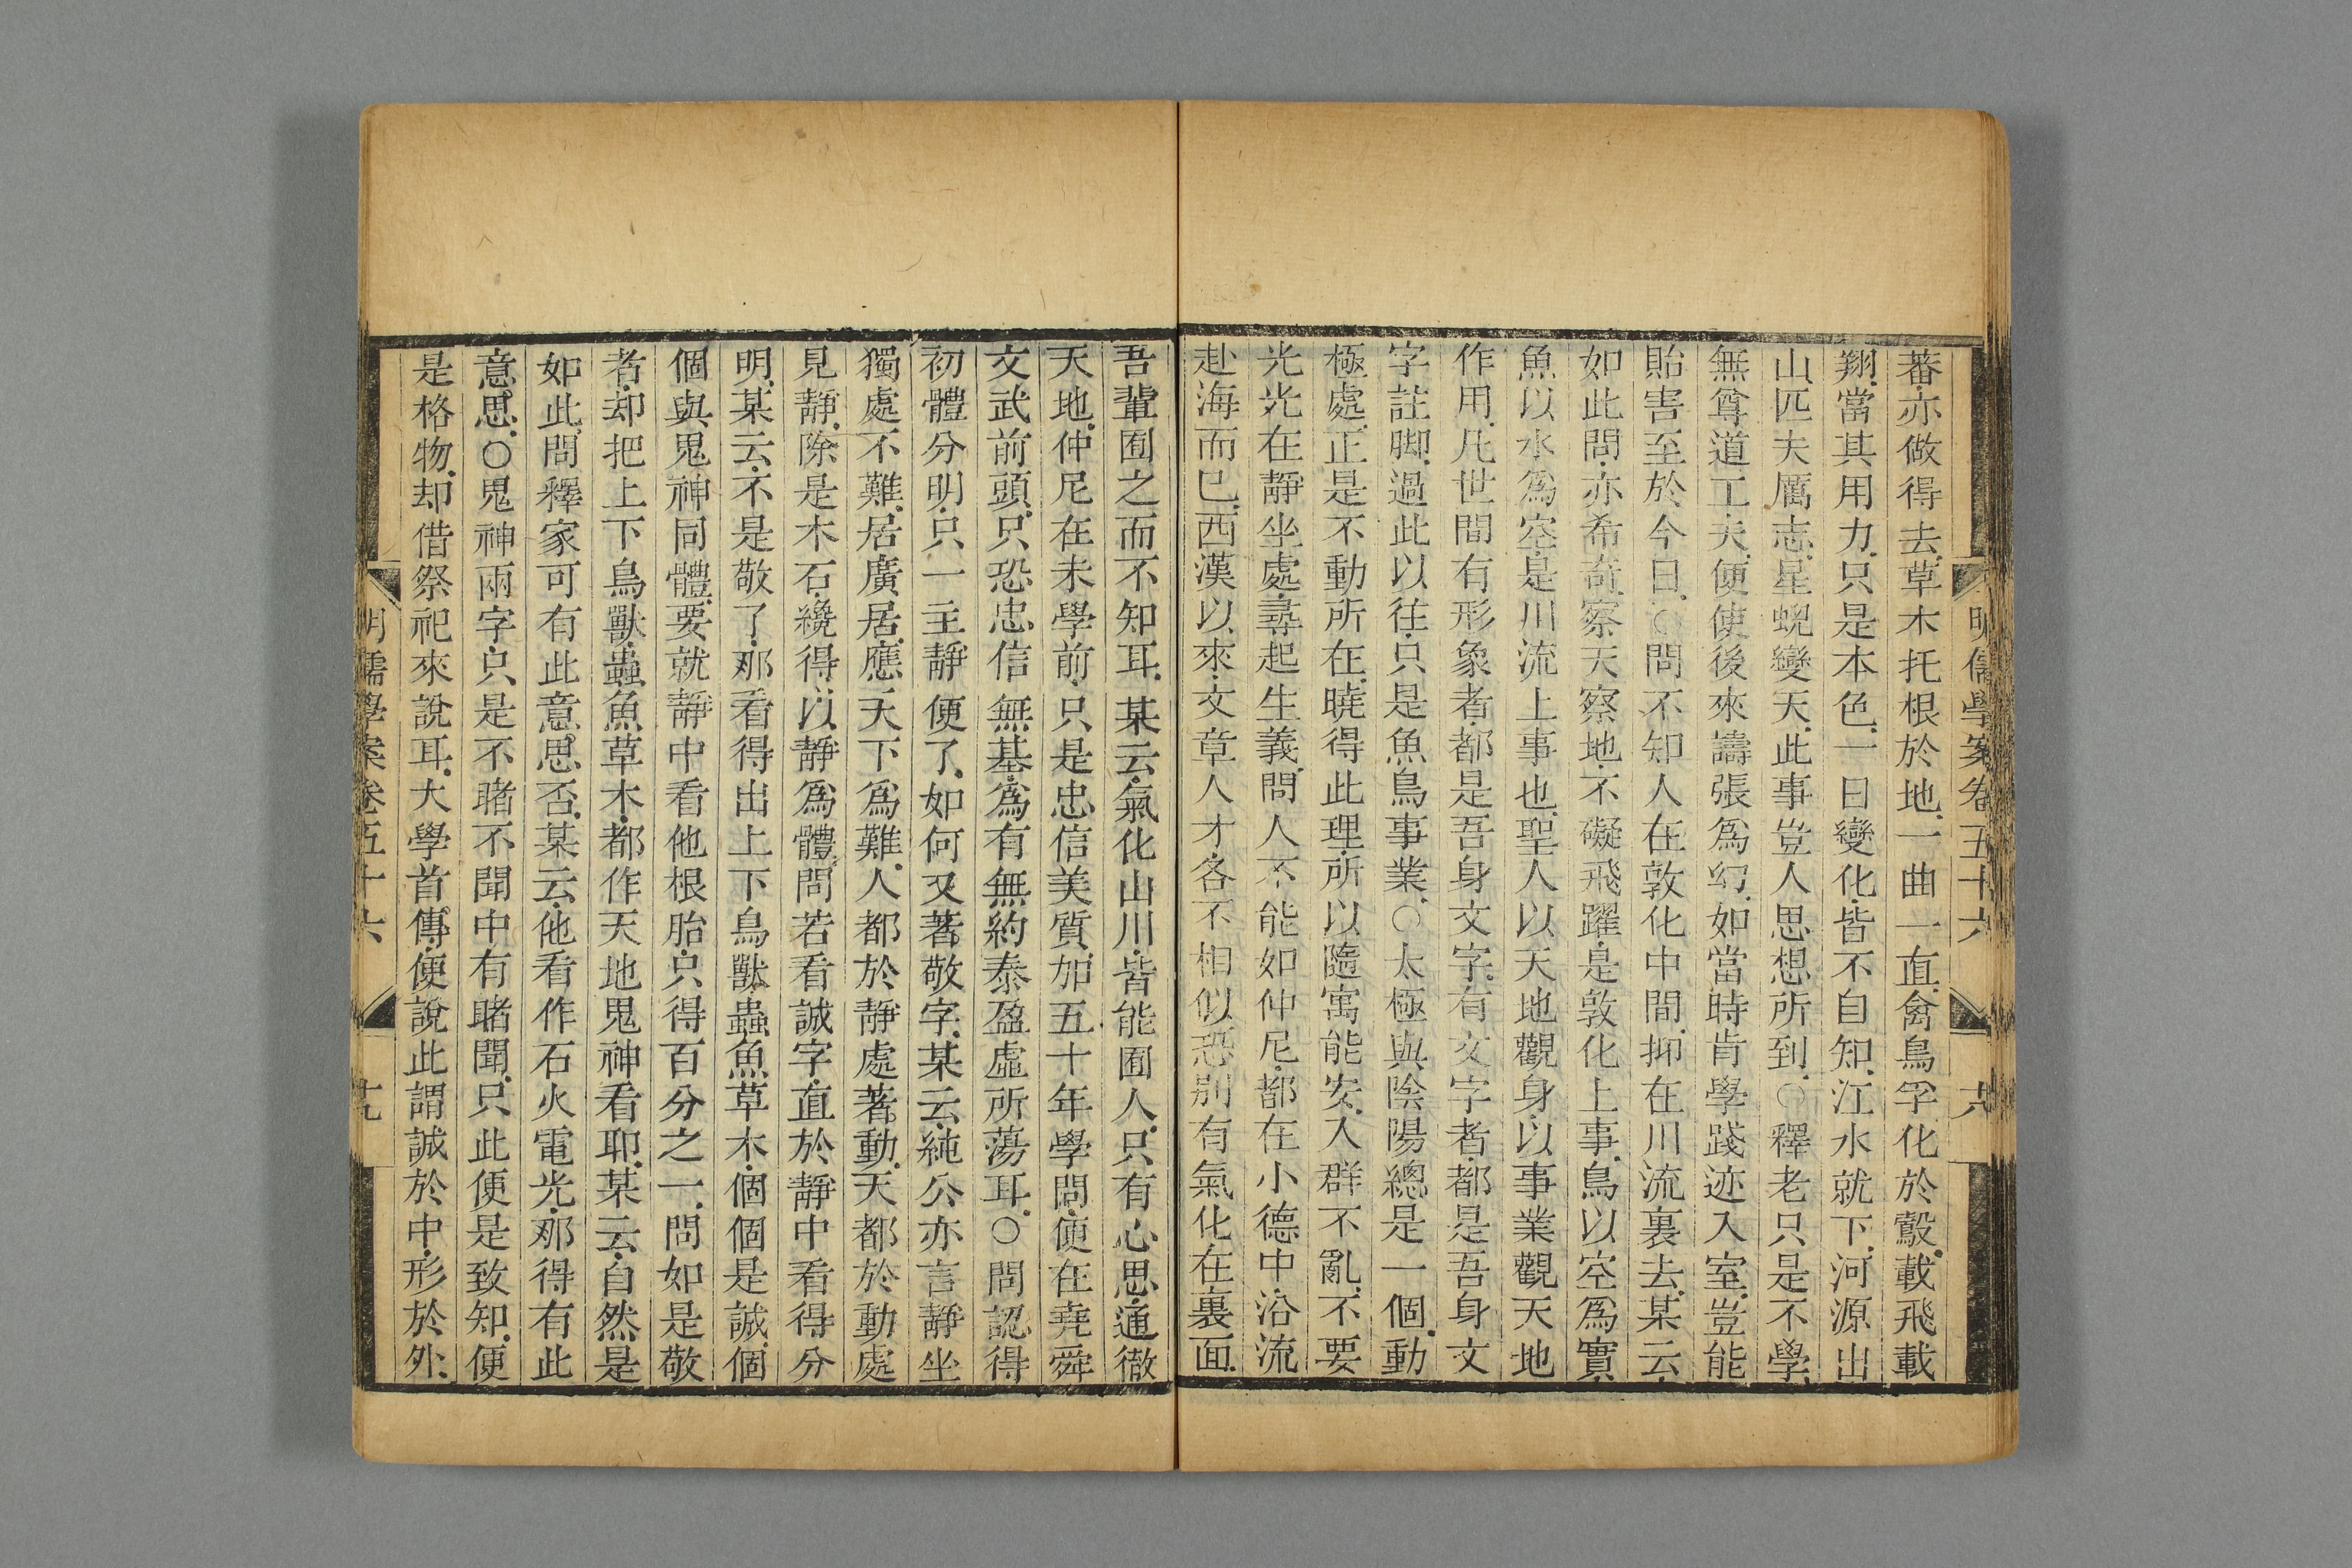 明儒學案卷五十六
蕃.亦做得去.草木托根於地.一曲一直.禽鳥孚化於鷇.載飛載
翔.當其用力.只是本色.一日變化.皆不自知.江水就下.河源出
山.匹夫厲志.星蜺變天.此事豈人思想所到.○釋老只是不學.
無尊道工夫.便使後來譸張爲幻.如當時肯學踐迹入室.豈能
貽害至於今日.○問不知人在敦化中間.抑在川流裏去.某云.
如此問.亦希奇.察天察地.不礙飛躍.是敦化上事.鳥以空爲實.
魚以水爲空.是川流上事也.聖人以天地觀身.以事業觀天地
作用.凡世間有形象者.都是吾身文字.有文字者.都是吾身文
字註脚.過此以往.只是魚鳥事業.○太極與陰陽總是一個.動
極處.正是不動所在.曉得此理.所以隨寓能安.入群不亂.不要
光光在靜坐處.尋起生義.問人不能如仲尼.都在小德中.浴流
赴海而已.西漢以來.文章人才.各不相似.恐別有氣化在裏面.
吾輩囿之而不知耳.某云.氣化山川.皆能囿人.只有心思.通徹
天地.仲尼在未學前.只是忠信美質.加五十年學問.便在堯舜
文武前頭.只恐忠信無基.爲有無約泰盈虛所蕩耳.○問認得
初體分明.只一主靜便了.如何又著敬字.某云.純公亦言靜坐
獨處不難.居廣居.應天下爲難.人都於靜處著動.天都於動處
見靜.除是木石.纔得以靜爲體.問若看誠字.直於靜中看得分
明.某云.不是敬了.那看得出上下鳥獸.蟲魚草木.個個是誠.個
個與鬼神同體.要就靜中看他根胎.只得百分之一.問如是敬
者.却把上下.鳥獸.蟲魚草木.都作天地鬼神看耶.某云.自然是
如此.問釋家可有此意思否.某云.他看作石火電光.那得有此
意思.○鬼神兩字.只是不睹不聞中.有睹聞.只此便是致知.便
是格物.却借祭祀來說耳.大學首傳.便說此謂誠於中.形於外.
明儒學案卷五十六